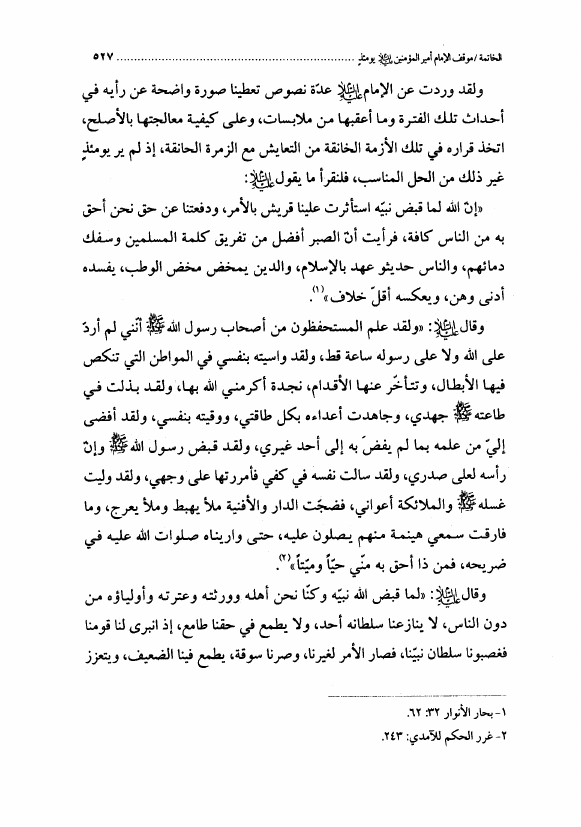 الخاتمة / موقف الإمام أمير المؤمنين عليه السلام يومئذٍ ........ ٥٢٧
ولقد وردت عن الإمام عليه السلام عدّة نصوص تعطينا صورة واضحة عن رأيه في
أحداث تلك الفترة وما أعقبها من ملابسات، وعلى كيفية معالجتها بالأصلح،
اتخذ قراره في تلك الأزمة الخانقة من التعايش مع الزمرة الحانقة، إذ لم ير يومئذٍ
غير ذلك من الحل المناسب، فلنقرأ ما يقول عليه السلام:
«إنّ الله لما قبض نبيّه استأثرت علينا قريش بالأمر، ودفعتنا عن حق نحن أحق
به من الناس كافة، فرأيت أنّ الصبر أفضل من تفريق كلمة المسلمين وسفك
دمائهم، والناس حديثو عهد بالإسلام، والدين يمخض مخض الوطب، يفسده
أدنى وهن، ويعكسه أقلّ خلاف»(١).
وقال عليه السلام: «ولقد علم المستحفظون من أصحاب رسول الله ﷺ أنّني لم أردّ
على الله ولا على رسوله ساعة قط، ولقد واسيته بنفسي في المواطن التي تنكص
فيها الأبطال، وتتأخّر عنها الأقدام، نجدة أكرمني الله بها، ولقد بذلت في
طاعته ﷺ جهدي، وجاهدت أعداءه بكل طاقتي، ووقيته بنفسي، ولقد أفضى
إليّ من علمه بما لم يفضَ به إلى أحد غيري، ولقد قبض رسول الله ﷺ وإنّ
رأسه لعلى صدري، ولقد سالت نفسه في كفي فأمررتها على وجهي، ولقد وليت
غسله ﷺ والملائكة أعواني، فضجّت الدار والأفنية ملأ يهبط وملأ يعرج، وما
فارقت سمعي هينمة منهم يصلون عليه، حتى واريناه صلوات الله عليه في
ضريحه، فمن ذا أحق به منّي حيّاً وميّتاً»(٢).
وقال عليه السلام: «لما قبض الله نبيّه وكنّا نحن أهله وورثته وعترته وأولياؤه من
دون الناس، لا ينازعنا سلطانه أحد، ولا يطمع في حقنا طامع، إذ انبرى لنا قومنا
فغصبونا سلطان نبيّنا، فصار الأمر لغيرنا، وصرنا سوقة، يطمع فينا الضعيف، ويتعزز
١- بحار الأنوار ٣٢: ٦٢.
٢- غرر الحكم للآمدي: ٢٤٣.